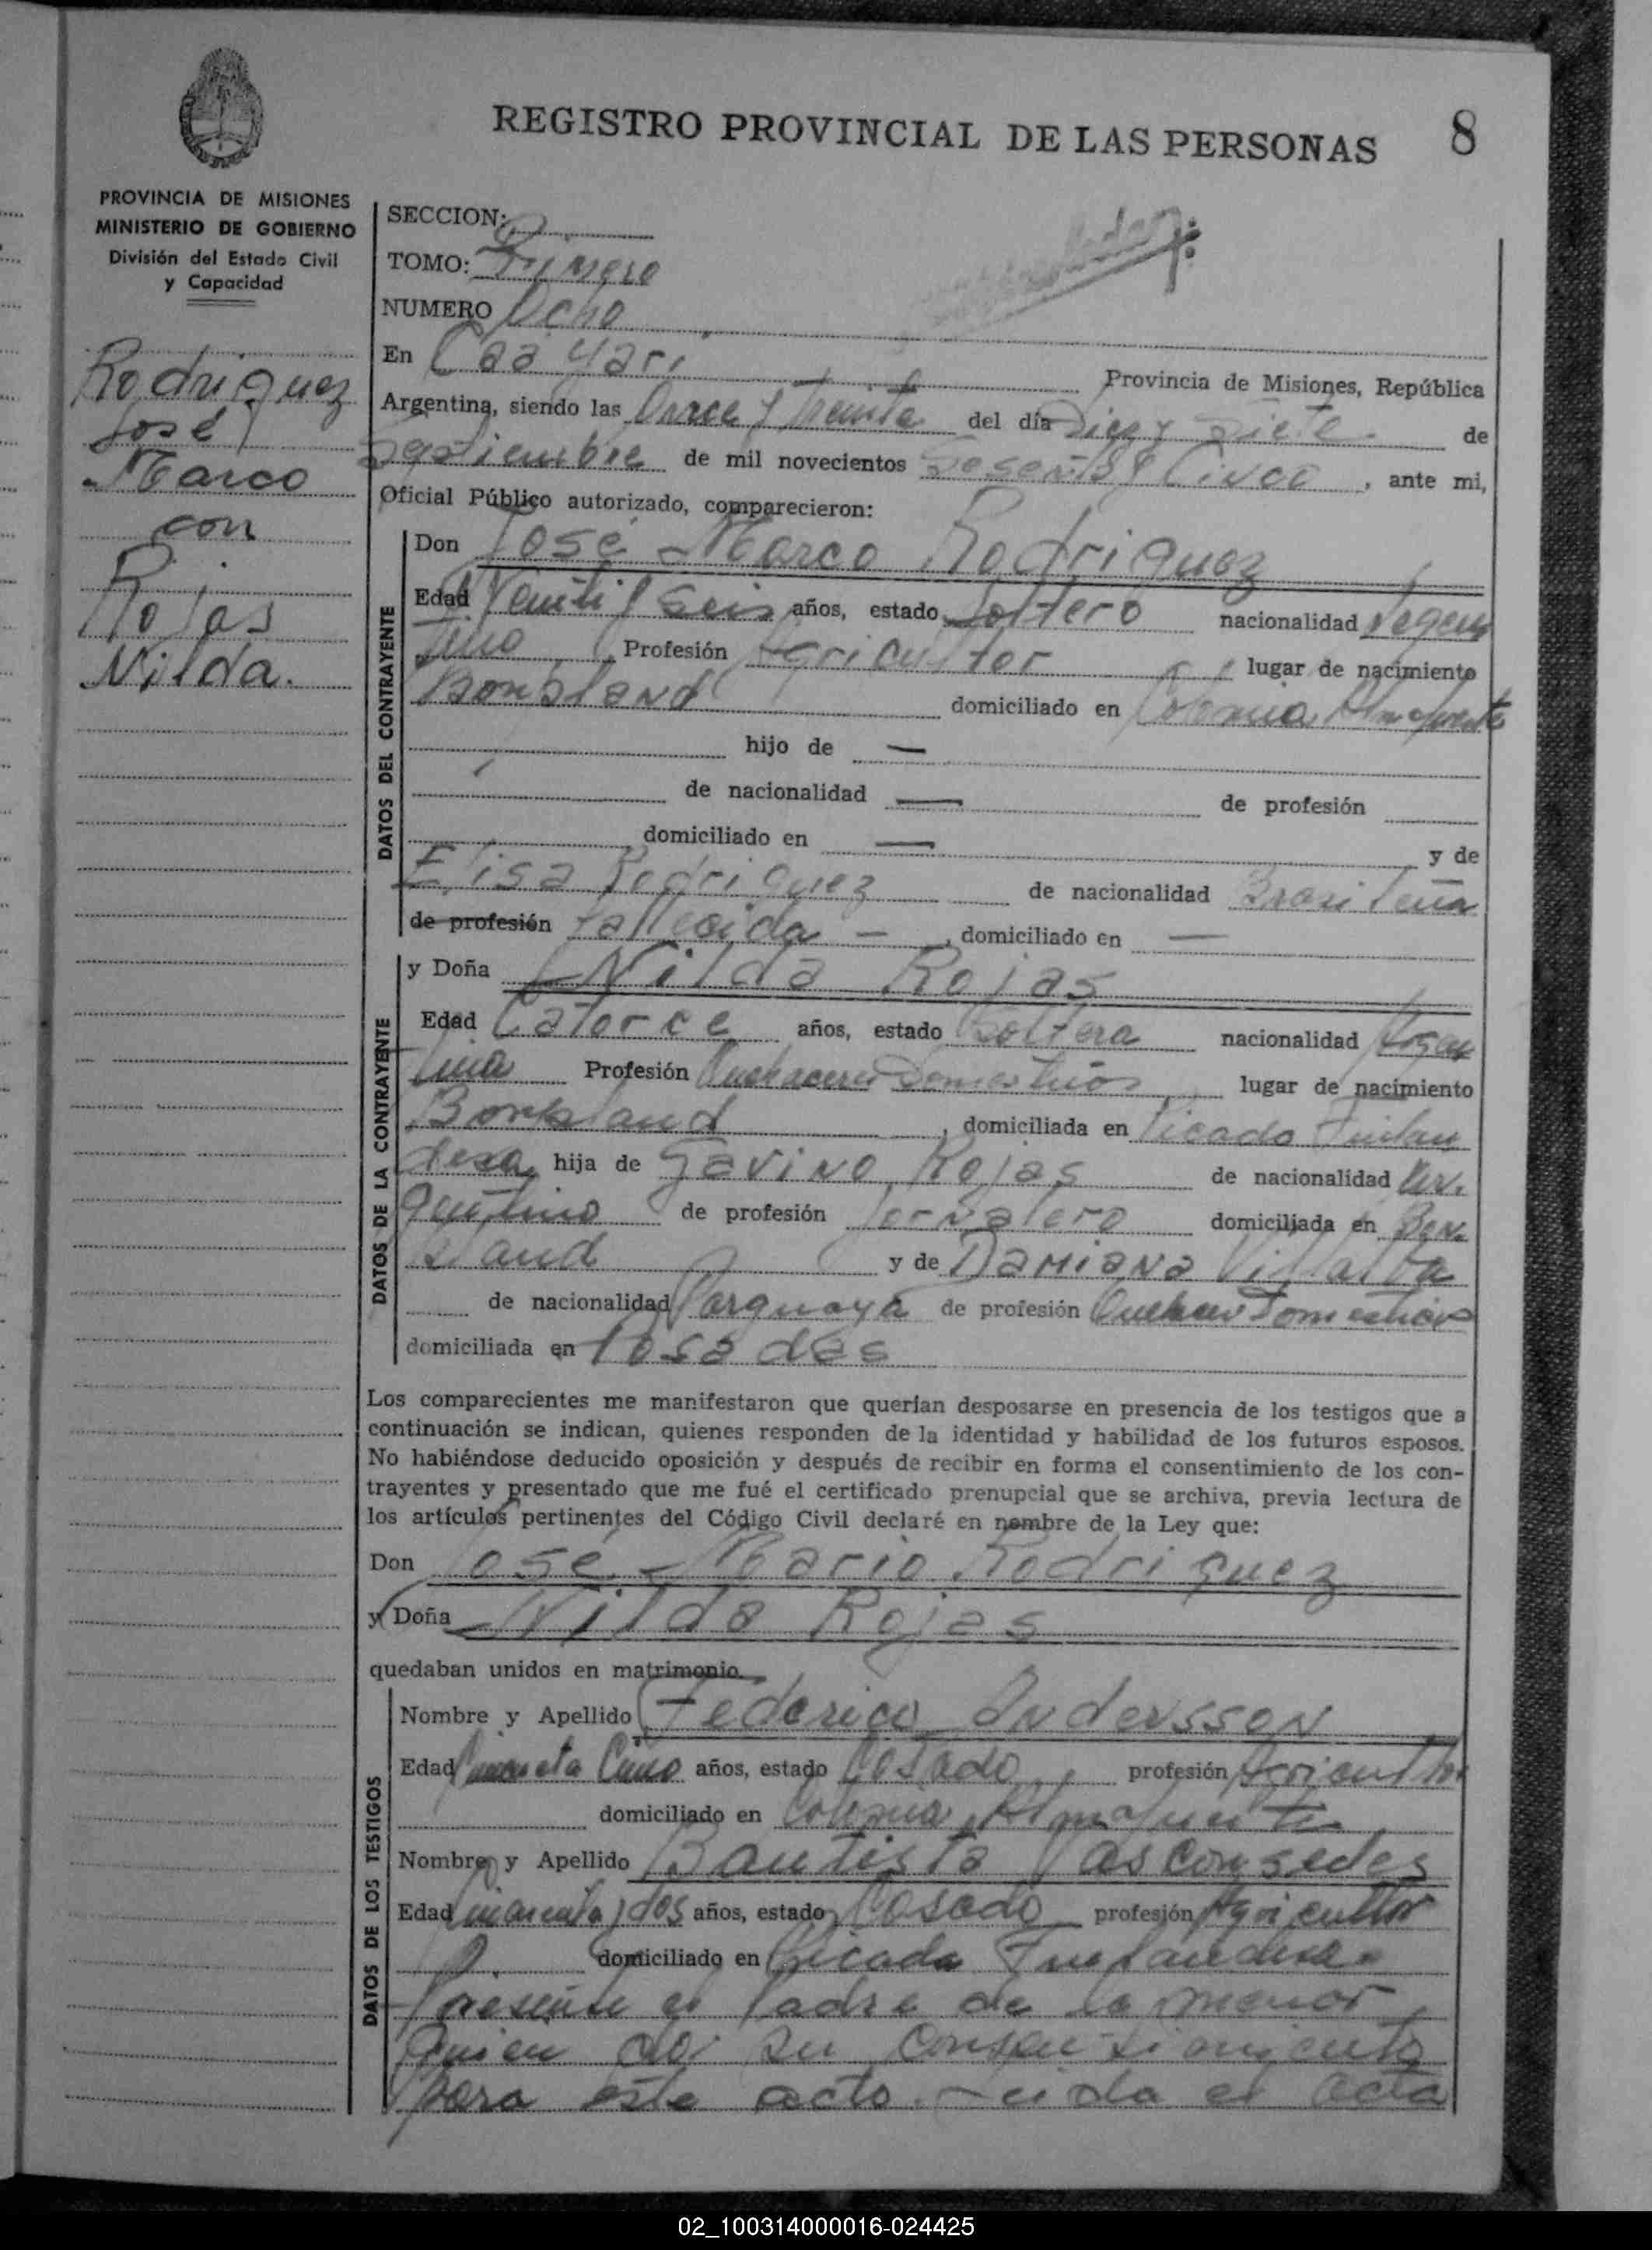 REGISTRO PROVINCIAL DE LAS PERSONAS 8
PROVINCIA DE MISIONES
MINISTERIO DE GOBIERNO
División del Estado Civil
y Capacidad
Rodriguez
José
Marco
con
Rojas
Nilda.
SECCION:
TOMO: Primero
NUMERO Ocho
En Caá Yarí Provincia de Misiones, República
Argentina, siendo las Once y treinta del día Diez y Siete de
Septiembre de mil novecientos Sesenta y Cinco, ante mi,
Oficial Público autorizado, comparecieron:
DATOS DEL CONTRAYENTE
Don José Marco Rodriguez
Edad Veinti y Seis años, estado Soltero nacionalidad Argen
tino Profesión Agricultor lugar de nacimiento
Bonpland domiciliado en Colonia Almafuerte
hijo de —
de nacionalidad — de profesión
domiciliado en — y de
Elisa Rodriguez de nacionalidad Brasileña
de profesión fallecida — , domiciliado en —
DATOS DE LA CONTRAYENTE
y Doña Nilda Rojas
Edad Catorce años, estado Soltera nacionalidad Argen
tina Profesión Quehaceres Domesticos lugar de nacimiento
Bonpland, domiciliada en Picada Finlan
desa, hija de Gavino Rojas de nacionalidad Ar.
gentino de profesión Jornalero domiciliada en Bon.
pland y de Damiana Villalba
de nacionalidad Parguaya de profesión Quehacer Domesticos
domiciliada en Posadas
Los comparecientes me manifestaron que querían desposarse en presencia de los testigos que a
continuación se indican, quienes responden de la identidad y habilidad de los futuros esposos.
No habiéndose deducido oposición y después de recibir en forma el consentimiento de los con-
trayentes y presentado que me fué el certificado prenupcial que se archiva, previa lectura de
los artículos pertinentes del Código Civil declaré en nombre de la Ley que:
Don José Mario Rodriguez
y Doña Nilda Rojas
quedaban unidos en matrimonio.
DATOS DE LOS TESTIGOS
Nombre y Apellido Federico Andersson
Edad Cincuenta Cinco años, estado Casado profesión Agricultor
domiciliado en Colonia Almafuerte
Nombre y Apellido Bautista Vasconsedes
Edad años, estado Casado profesión Agricultor
domiciliado en Picada Finlandesa
Presente el Padre de la menor
quien da su consentimiento
para este acto. Leida el acta
02_100314000016-024425